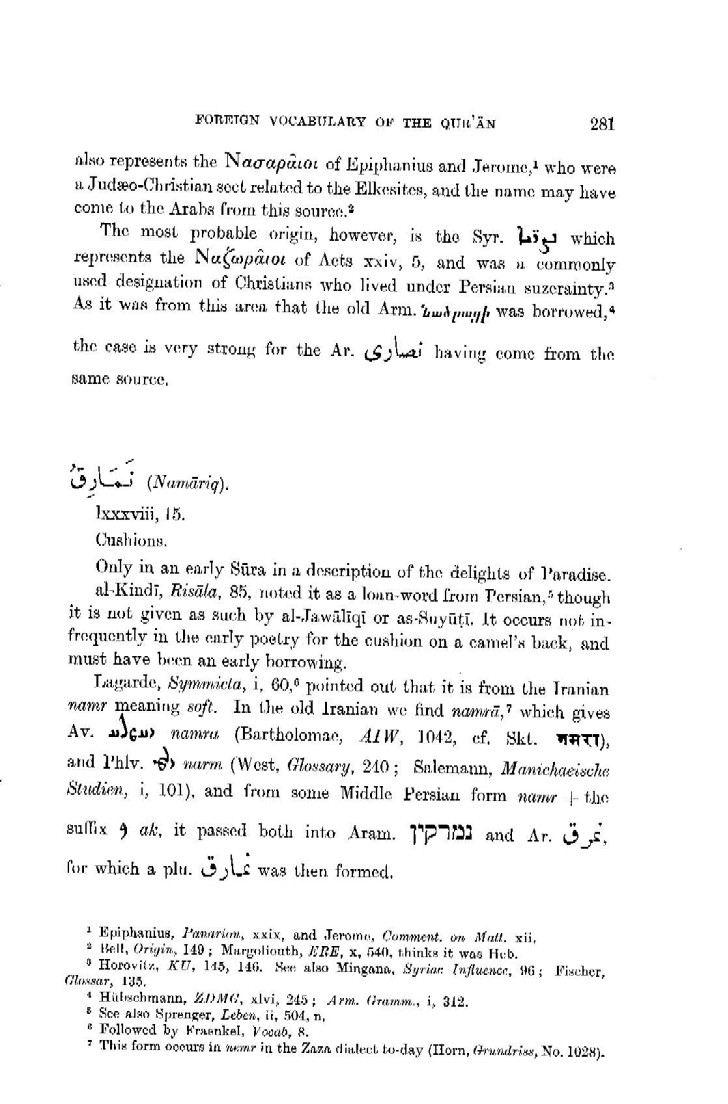 FOREIGN VOCABULARY OF THE QUR'ĀN 281
also represents the Νασαραῖοι of Epiphanius and Jerome,¹ who were
a Judæo-Christian sect related to the Elkesites, and the name may have
come to the Arabs from this source.²
The most probable origin, however, is the Syr. ܢܨܪ̈ܝܐ which
represents the Ναζωραῖοι of Acts xxiv, 5, and was a commonly
used designation of Christians who lived under Persian suzerainty.³
As it was from this area that the old Arm. Նածրացի was borrowed,⁴
the case is very strong for the Ar. نصارى having come from the
same source.
نَمَارِقُ (Namāriq).
lxxxviii, 15.
Cushions.
Only in an early Sūra in a description of the delights of Paradise.
al-Kindī, Risāla, 85, noted it as a loan-word from Persian,⁵ though
it is not given as such by al-Jawālīqī or as-Suyūṭī. It occurs not in-
frequently in the early poetry for the cushion on a camel's back, and
must have been an early borrowing.
Lagarde, Symmicta, i, 60,⁶ pointed out that it is from the Iranian
namr meaning soft. In the old Iranian we find namrā,⁷ which gives
Av. namra (Bartholomae, AIW, 1042, cf. Skt. नम्रता),
and Phlv. narm (West, Glossary, 240; Salemann, Manichaeische
Studien, i, 101), and from some Middle Persian form namr + the
suffix ak, it passed both into Aram. נמרקין and Ar. نمرق,
for which a plu. نمارق was then formed.
¹ Epiphanius, Panarion, xxix, and Jerome, Comment. on Matt. xii,
² Bell, Origin, 149; Margoliouth, ERE, x, 540, thinks it was Heb.
³ Horovitz, KU, 145, 146. See also Mingana, Syriac Influence, 96; Fischer,
Glossar, 135.
⁴ Hübschmann, ZDMG, xlvi, 245; Arm. Gramm., i, 312.
⁵ See also Sprenger, Leben, ii, 504, n,
⁶ Followed by Fraenkel, Vocab, 8.
⁷ This form occurs in nemr in the Zaza dialect to-day (Horn, Grundriss, No. 1028).